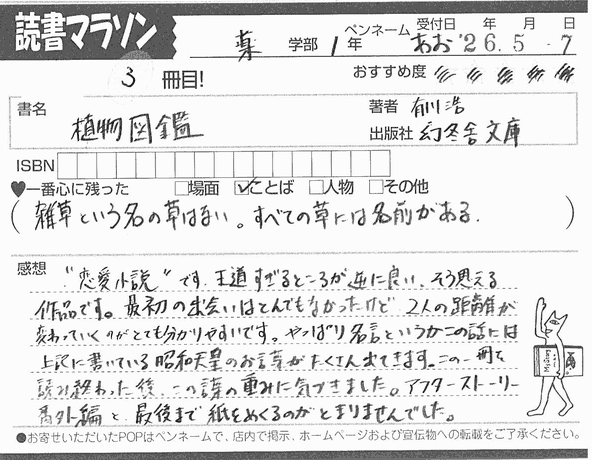 読書マラソン
薬 学部 1年 ペンネーム あお 受付日 '26年 5月 7日
3 冊目!
おすすめ度
書名 植物図鑑
著者 有川浩
出版社 幻冬舎文庫
ISBN
♥一番心に残った □場面 ☑ことば □人物 □その他
(雑草という名の草はない。すべての草には名前がある.)
感想 "恋愛小説"です。王道すぎるところが逆に良い、そう思える
作品です。最初の出会いはとんでもなかったけど、2人の距離が
変わっていくのがとても分かりやすいです。やっぱり名言というかこの話には
上記に書いている昭和天皇のお言葉がたくさん出てきます。この一冊を
読み終わった後、この言葉の重みに気づきました。アフターストーリー
番外編と、最後まで紙をめくるのがとまりませんでした。
●お寄せいただいたPOPはペンネームで、店内で掲示、ホームページおよび宣伝物への転載をご了承ください。